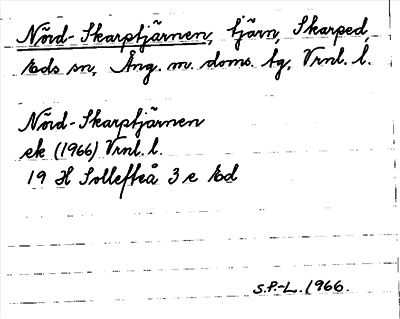 Nörd-Skarptjärnen, tjärn, Skarped,
Eds sn, Ång. m. doms. tg, Vrnl. l.
Nörd-Skarptjärnen
ek (1966) Vrnl. l.
19 H Sollefteå 3 e Ed
S.P.-L. 1966.